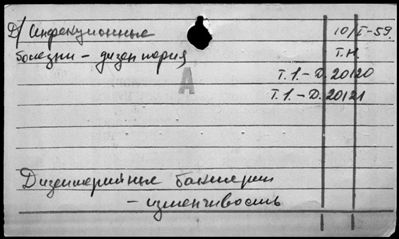 Д/ Инфекционные 10/I-59.
болезни – дизентерия Т.Н.
Т.1.–D.20120
А
Т.1.–D.20121
Дизентерийные бактерии
– изменчивость